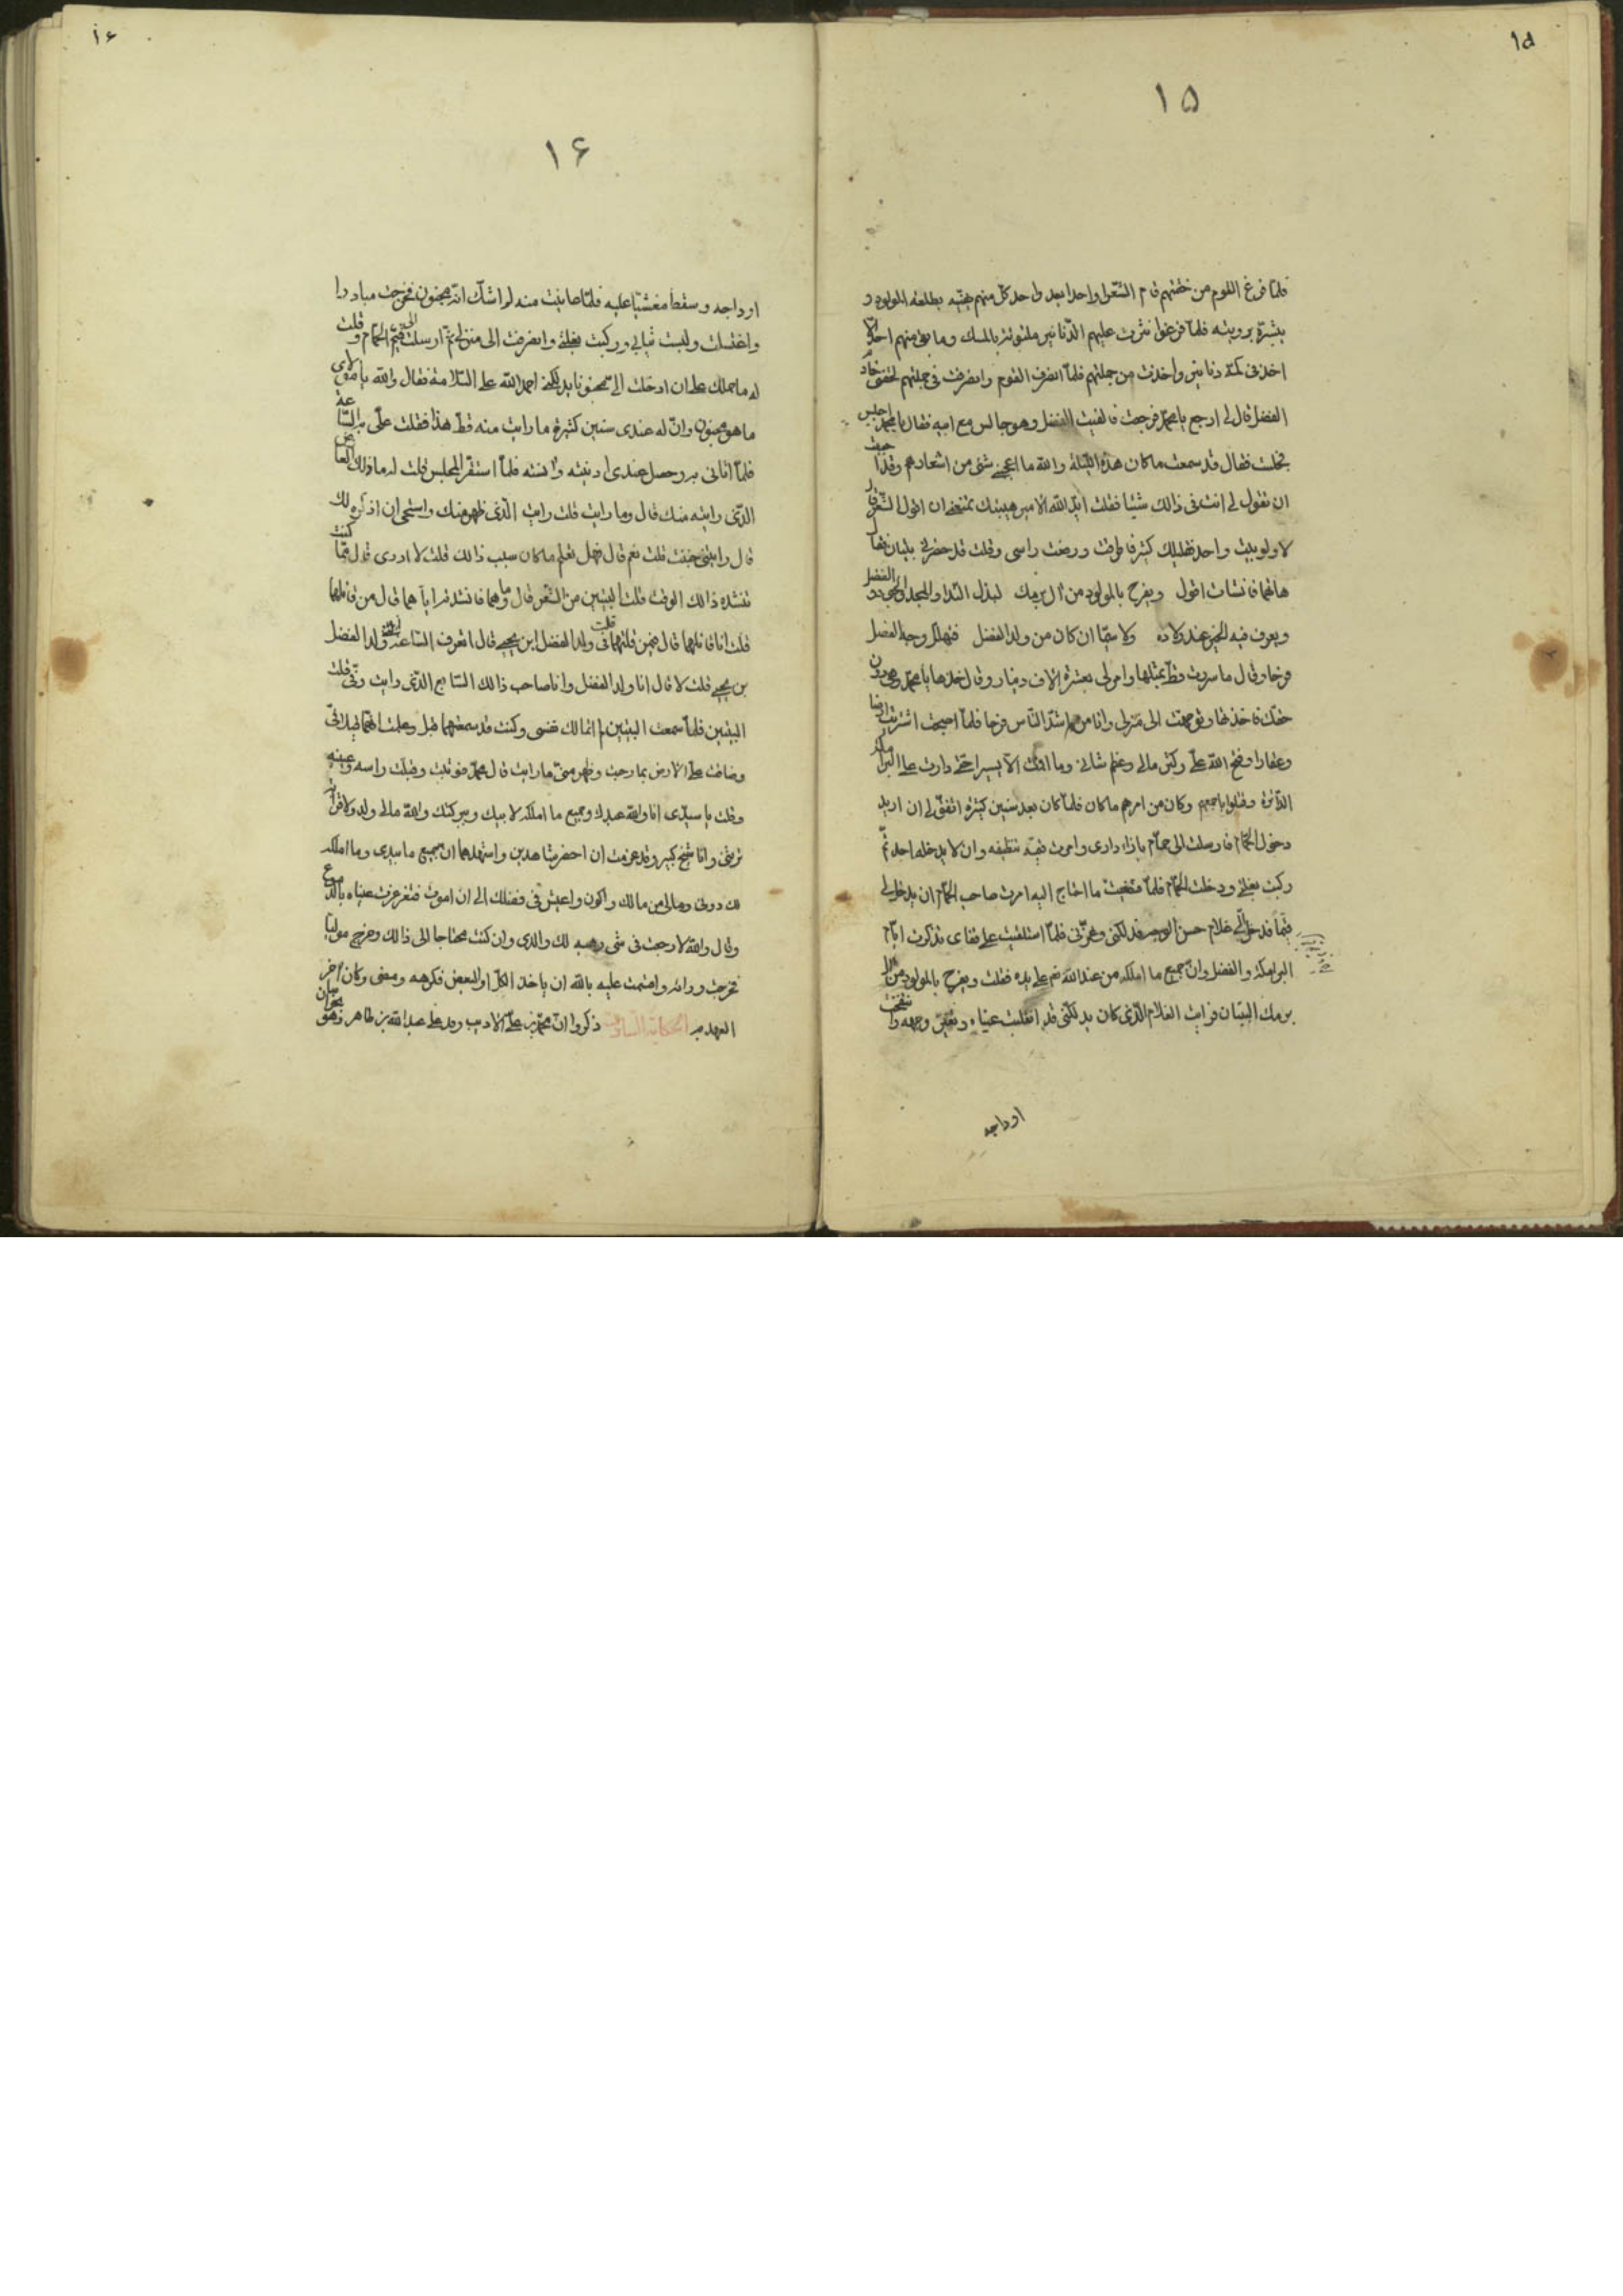 ١۵
١۵
فلمّا فرغ القوم من خفتهم قام الشعرا واحدا بعد واحد كل منهم يهنيه بطلعة المولود و
يبشره برويته فلمّا فرغوا نثرت عليهم الدنانير ملتوته بالمسك وما بقى منهم احد الّا
اخذ فى كمّه دنانير واخذت من جملتهم فلمّا انصرف القوم وانصرفت فى جملتهم لحقنى خادم
الفضل قال لى ارجع يا محمّد فرجعت فالفيت الفضل وهو جالس مع ابيه فقال يا محمّد اجلس
فجلست فقال قد سمعت ما كان هذه الليلة والله ما اعجبنى شئ من اشعارهم وقد احببت
ان تقول لى انت فى ذالك شيئا فقلت ايّد الله الامير هيبتك تمنعنى ان اقول الشعر قال
لا ولو بيت واحد فقليلك كثير فاطرقت ورفعت راسى وقلت قد حضرنى بيتان فقال
هاتهما فانشات اقول ويفرح بالمولود من آل برمك لبذل الندا والمجد والجود و الفضل
ويعرف فيه الخير عند ولاده ولا سيّما ان كان من ولد الفضل فتهلل وجه الفضل
فرحا وقال ما سررت قطّ بمثلها وامر لى بعشرة الاف دينار وقال خذها يا محمّد وهى دون
حقك فاخذتها وتوجهت الى منزلى وانا من اشدّ الناس فرحا فلمّا اصبحت اشتريت ارضا
وعقارا وفتح الله علىّ وكثر مالى وعظم شانى وما اقمت الّا يسيرا حتى دارت على البرامكه
الدّائرة وقتلوا باجمعهم وكان من امرهم ما كان فلمّا كان بعد سنين كثيره اتفق لى ان اريد
دخول الحمّام فارسلت الى حمّام بازاء دارى وامرت قيّمه بتنظيفه وان لا يدخله احد ثمّ
ركبت بغلتى ودخلت الحمّام فلمّا قضيت ما احتاج اليه امرت صاحب الحمّام ان يدخل لى
قيّما فدخل الّى غلام حسن الوجه فدلكنى وغمزنى فلمّا استلقيت على قفاى تذكرت ايّام
البرامكة والفضل وانّ جميع ما املكه من عند الله ثم على يده فقلت ويفرح بالمولود من آل
برمك البيتان فرايت الغلام الذى كان يدلكنى قد انقلبت عيناه وتغيّر وجهه وانتفخت
اوداجه
١۶
١۶
اوداجه وسقط مغشيّا عليه فلمّا عاينت منه لم اشكّ انّه مجنون فخرجت مبادرا
واغتسلت ولبست ثيابى وركبت بغلتى وانصرفت الى منزلى ثمّ ارسلت الى قيّم الحمّام وقلت
له ما حملك على ان ادخلت الىّ مجنونا يدلكنى احمد الله على السّلامة فقال والله يا مولاى
ما هو مجنون وانّ له عندى سنين كثيرة ما رايت منه قطّ هذا فقلت علىّ به السّاعة
فلمّا اتانى به وحصل عندى ادنيته وآنسته فلمّا استقرّ المجلس قلت له ما ذلك العارض
الذى رايته منك قال وما رايت قلت رايت الذى ظهر منك واستحى ان اذكره لك
قال رايتنى جننت قلت نعم قال فهل تعلم ما كان سبب ذالك قلت لا ادرى قال فما كنت
تنشده ذالك الوقت قلت البيتين من الشعر قال وما هما فانشدته اياهما قال من قائلهما
قلت انا قائلهما قال فيمن قلتهما قلت فى ولد الفضل ابن يحيى قال اتعرف السّاعة ولد الفضل
بن يحيى قلت لا قال انا ولد الفضل وانا صاحب ذالك السّابع الذى رايت وفىّ قلت
البيتين فلمّا سمعت البيتين لم اتمالك نفسى وكنت قد سمعتهما قبل وعلمت انّهما قيلا فىّ
وضاقت علىّ الارض بما رحبت وظهر منّى ما رايت قال محمّد فوثبت وقبلت راسه وعينيه
وقلت يا سيّدى انا والله عبدك وجميع ما املكه لابيك وببركتك والله مالى ولد ولا قرابة
ترثنى وانا شيخ كبير وقد عزمت ان احضر شاهدين واستشهدهما ان جميع ما بيدى وما املكه
لك دونى ومالى من مالك واكون واعيش فى فضلك الى ان اموت فتغرغرت عيناه بالدموع
وقال والله لا رجعت فى شى وهبه لك والدى وان كنت محتاجا الى ذالك وخرج موليّا
فخرجت ورائه واقسمت عليه بالله ان ياخذ الكلّ او البعض فكرهه ومضى وكان آخر
العهد به الحكاية السادسة ذكروا انّ محمّد بن علىّ الاديب وفد على عبد الله بن طاهر وهو بخراسان